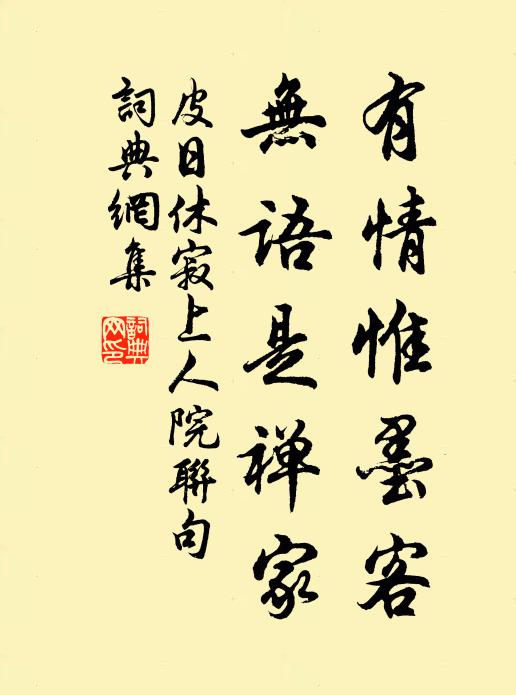 有情惟墨客
無語是禅家
皮日休寂上人院聯句
詞典網集
詞典網印